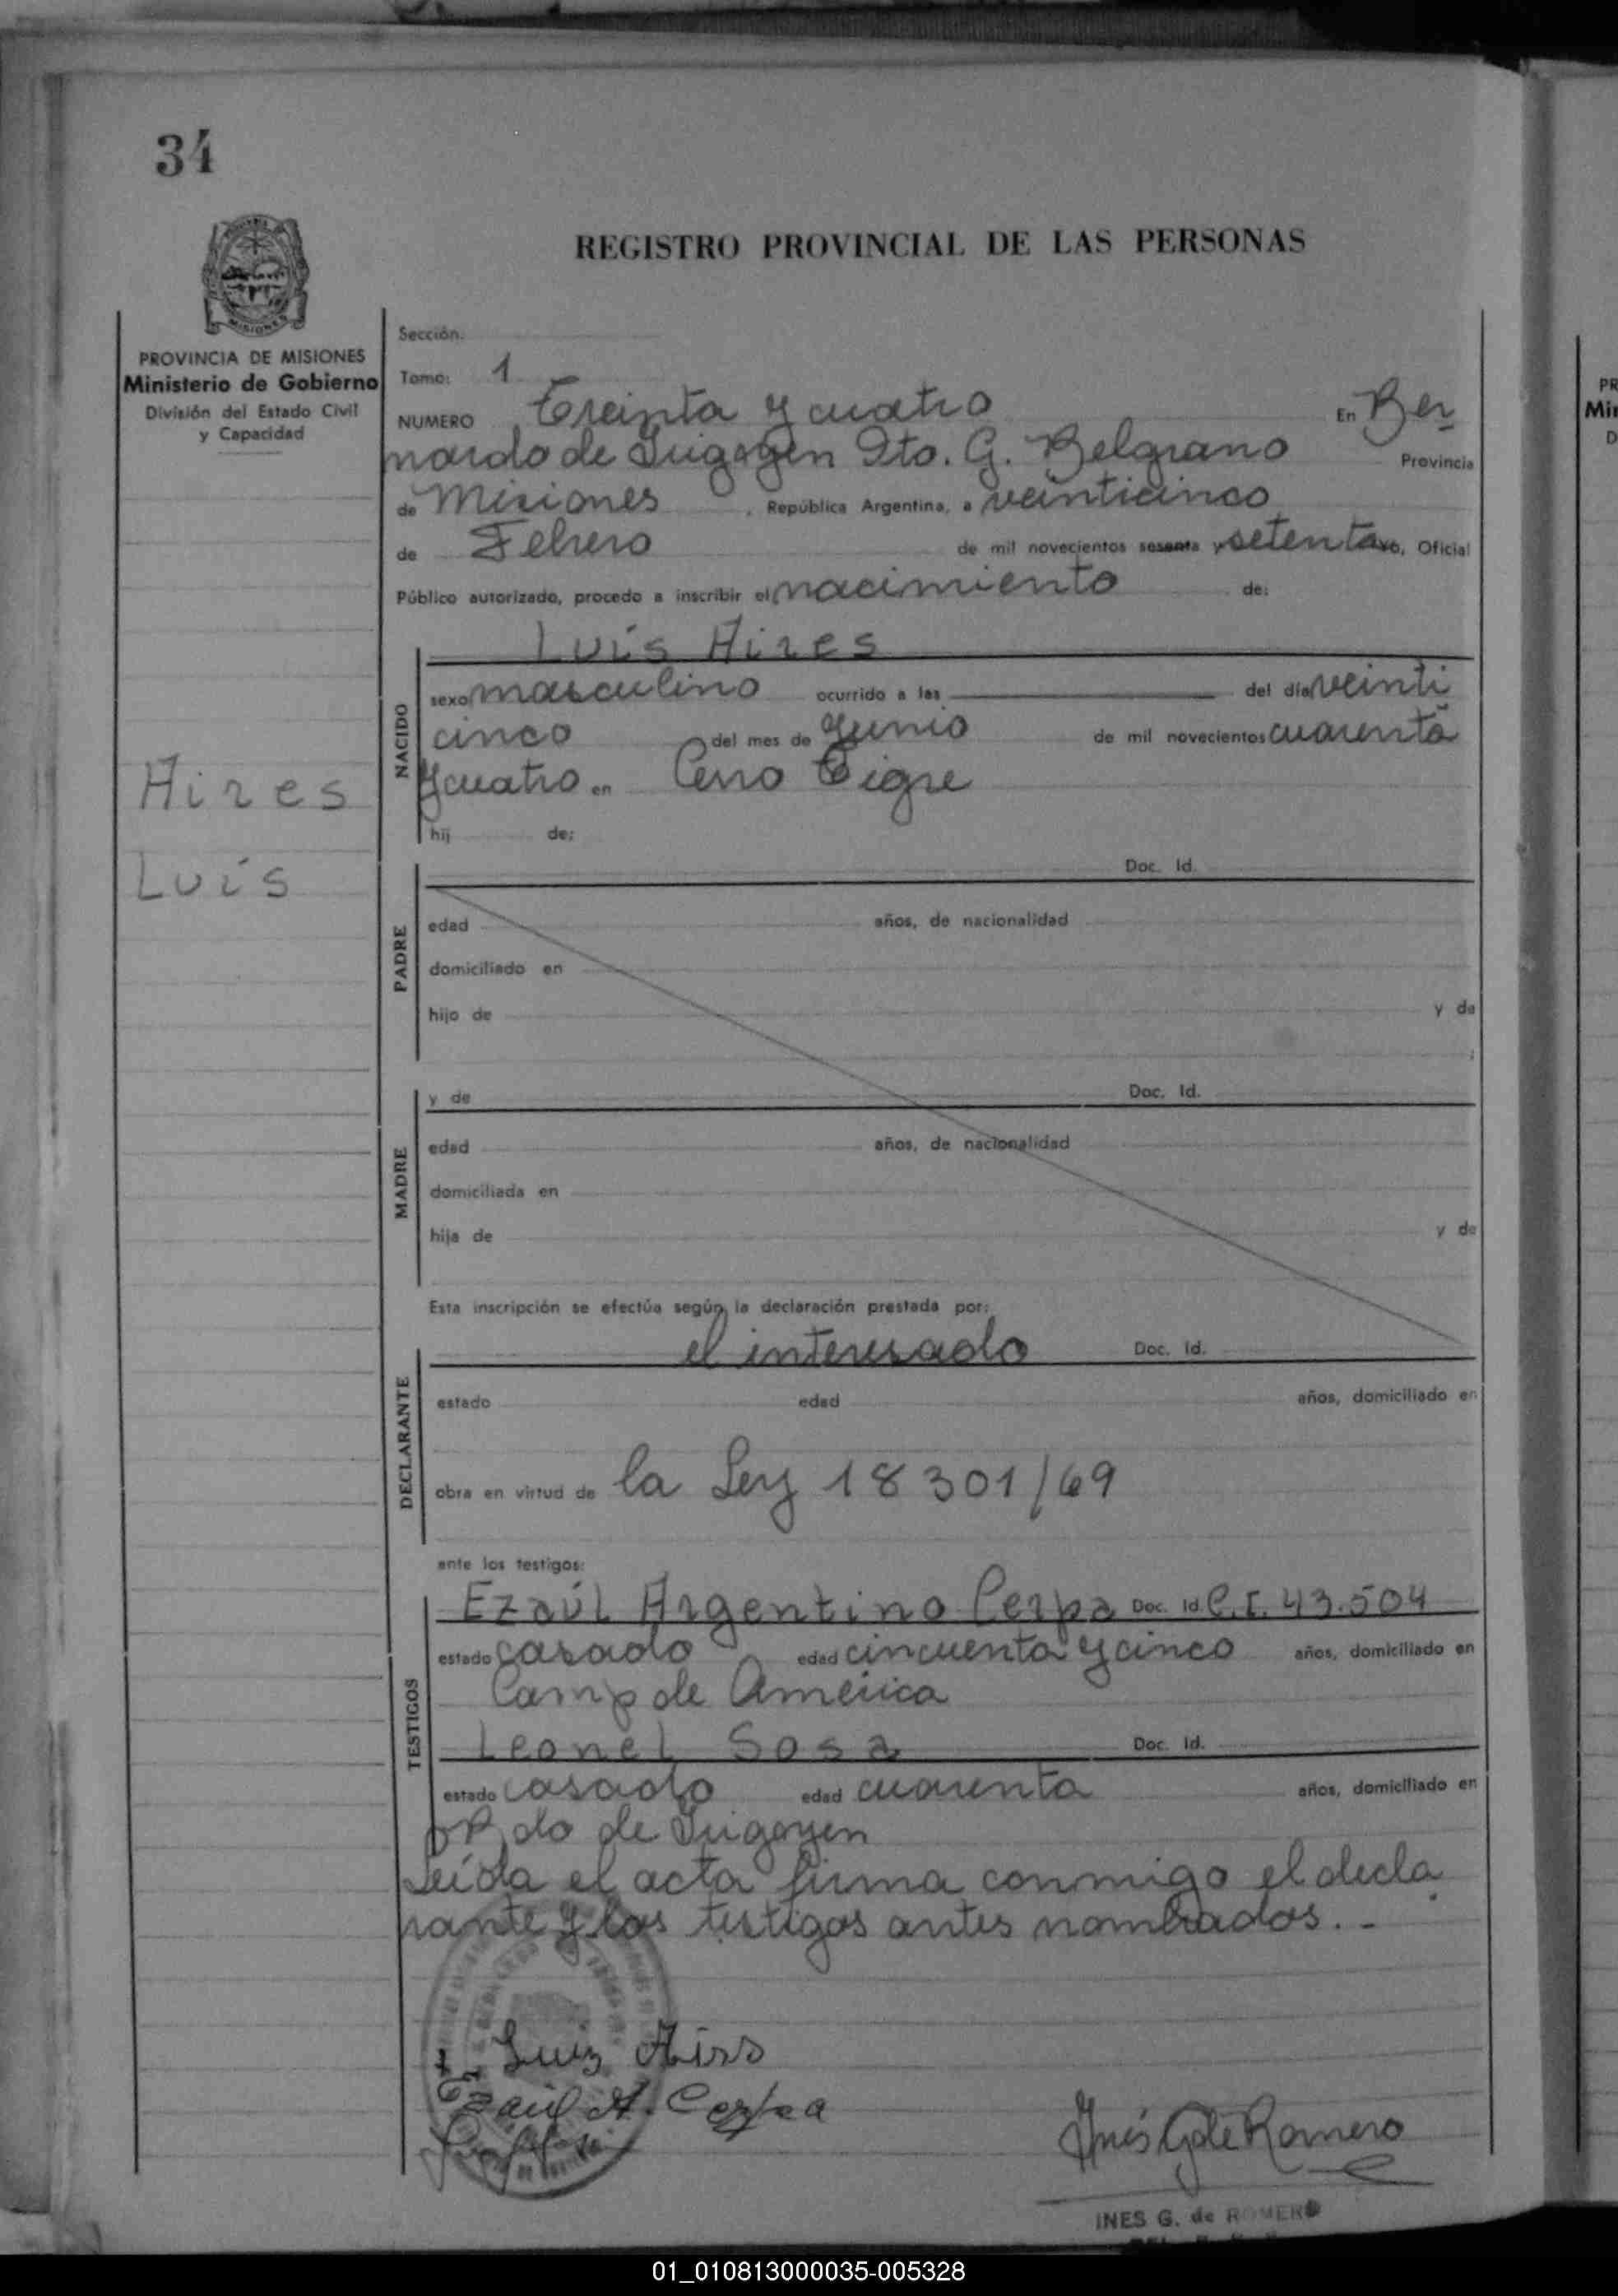 34
REGISTRO PROVINCIAL DE LAS PERSONAS
MISIONES
PROVINCIA DE MISIONES
Ministerio de Gobierno
División del Estado Civil
y Capacidad
Sección:
Tomo: 1
NUMERO Treinta y cuatro En Ber
nardo de Irigoyen Dto. G. Belgrano Provincia
de Misiones, República Argentina, a veinticinco
de Febrero de mil novecientos sesenta y setenta yo, Oficial
Público autorizado, procedo a inscribir el nacimiento de:
Luís Aires
NACIDO
sexo masculino ocurrido a las del día veinti
cinco del mes de Junio de mil novecientos cuarenta
y cuatro en Cerro Tigre
hij de:
Aires
Luís
PADRE
Doc. Id.
edad años, de nacionalidad
domiciliado en
hijo de y de
;
MADRE
y de Doc. Id.
edad años, de nacionalidad
domiciliada en
hija de y de
Esta inscripción se efectúa según la declaración prestada por:
DECLARANTE
el interesado Doc. Id.
estado edad años, domiciliado en
obra en virtud de la Ley 18301/69
ante los testigos:
TESTIGOS
Ezaúl Argentino Cerpa Doc. Id. C.I. 43.504
estado casado edad cincuenta y cinco años, domiciliado en
Camp de América
Leonel Sosa Doc. Id.
estado casado edad cuarenta años, domiciliado en
Bdo de Irigoyen
Leída el acta firma conmigo el decla
rante y los testigos antes nombrados. -
Luiz Airs
Ezaúl A. Cerpa
Inés G de Romero
INES G. de ROMERO
01_010813000035-005328